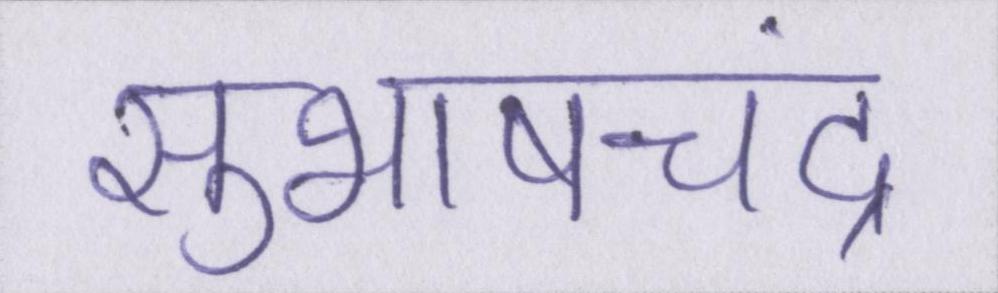 सुभाषचंद्र